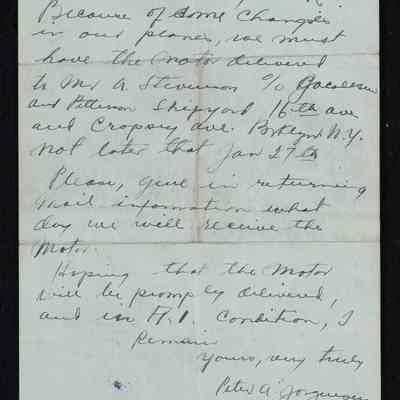 Because of some Changes
in our planes, we must
have the motor delivered
to Mr A Stevenson c/o
and Petterson Shipyard 16th ave
and Cropsey ave. Boklyn N.Y.
not later that Jan 27th
Please, give in returning
mail information what
day we will receive the
Motor.
Hoping that the Motor
will be promply delivered,
and in A.1. Condition, I
Remain
yours, very truly
Peter A. Jorgensen